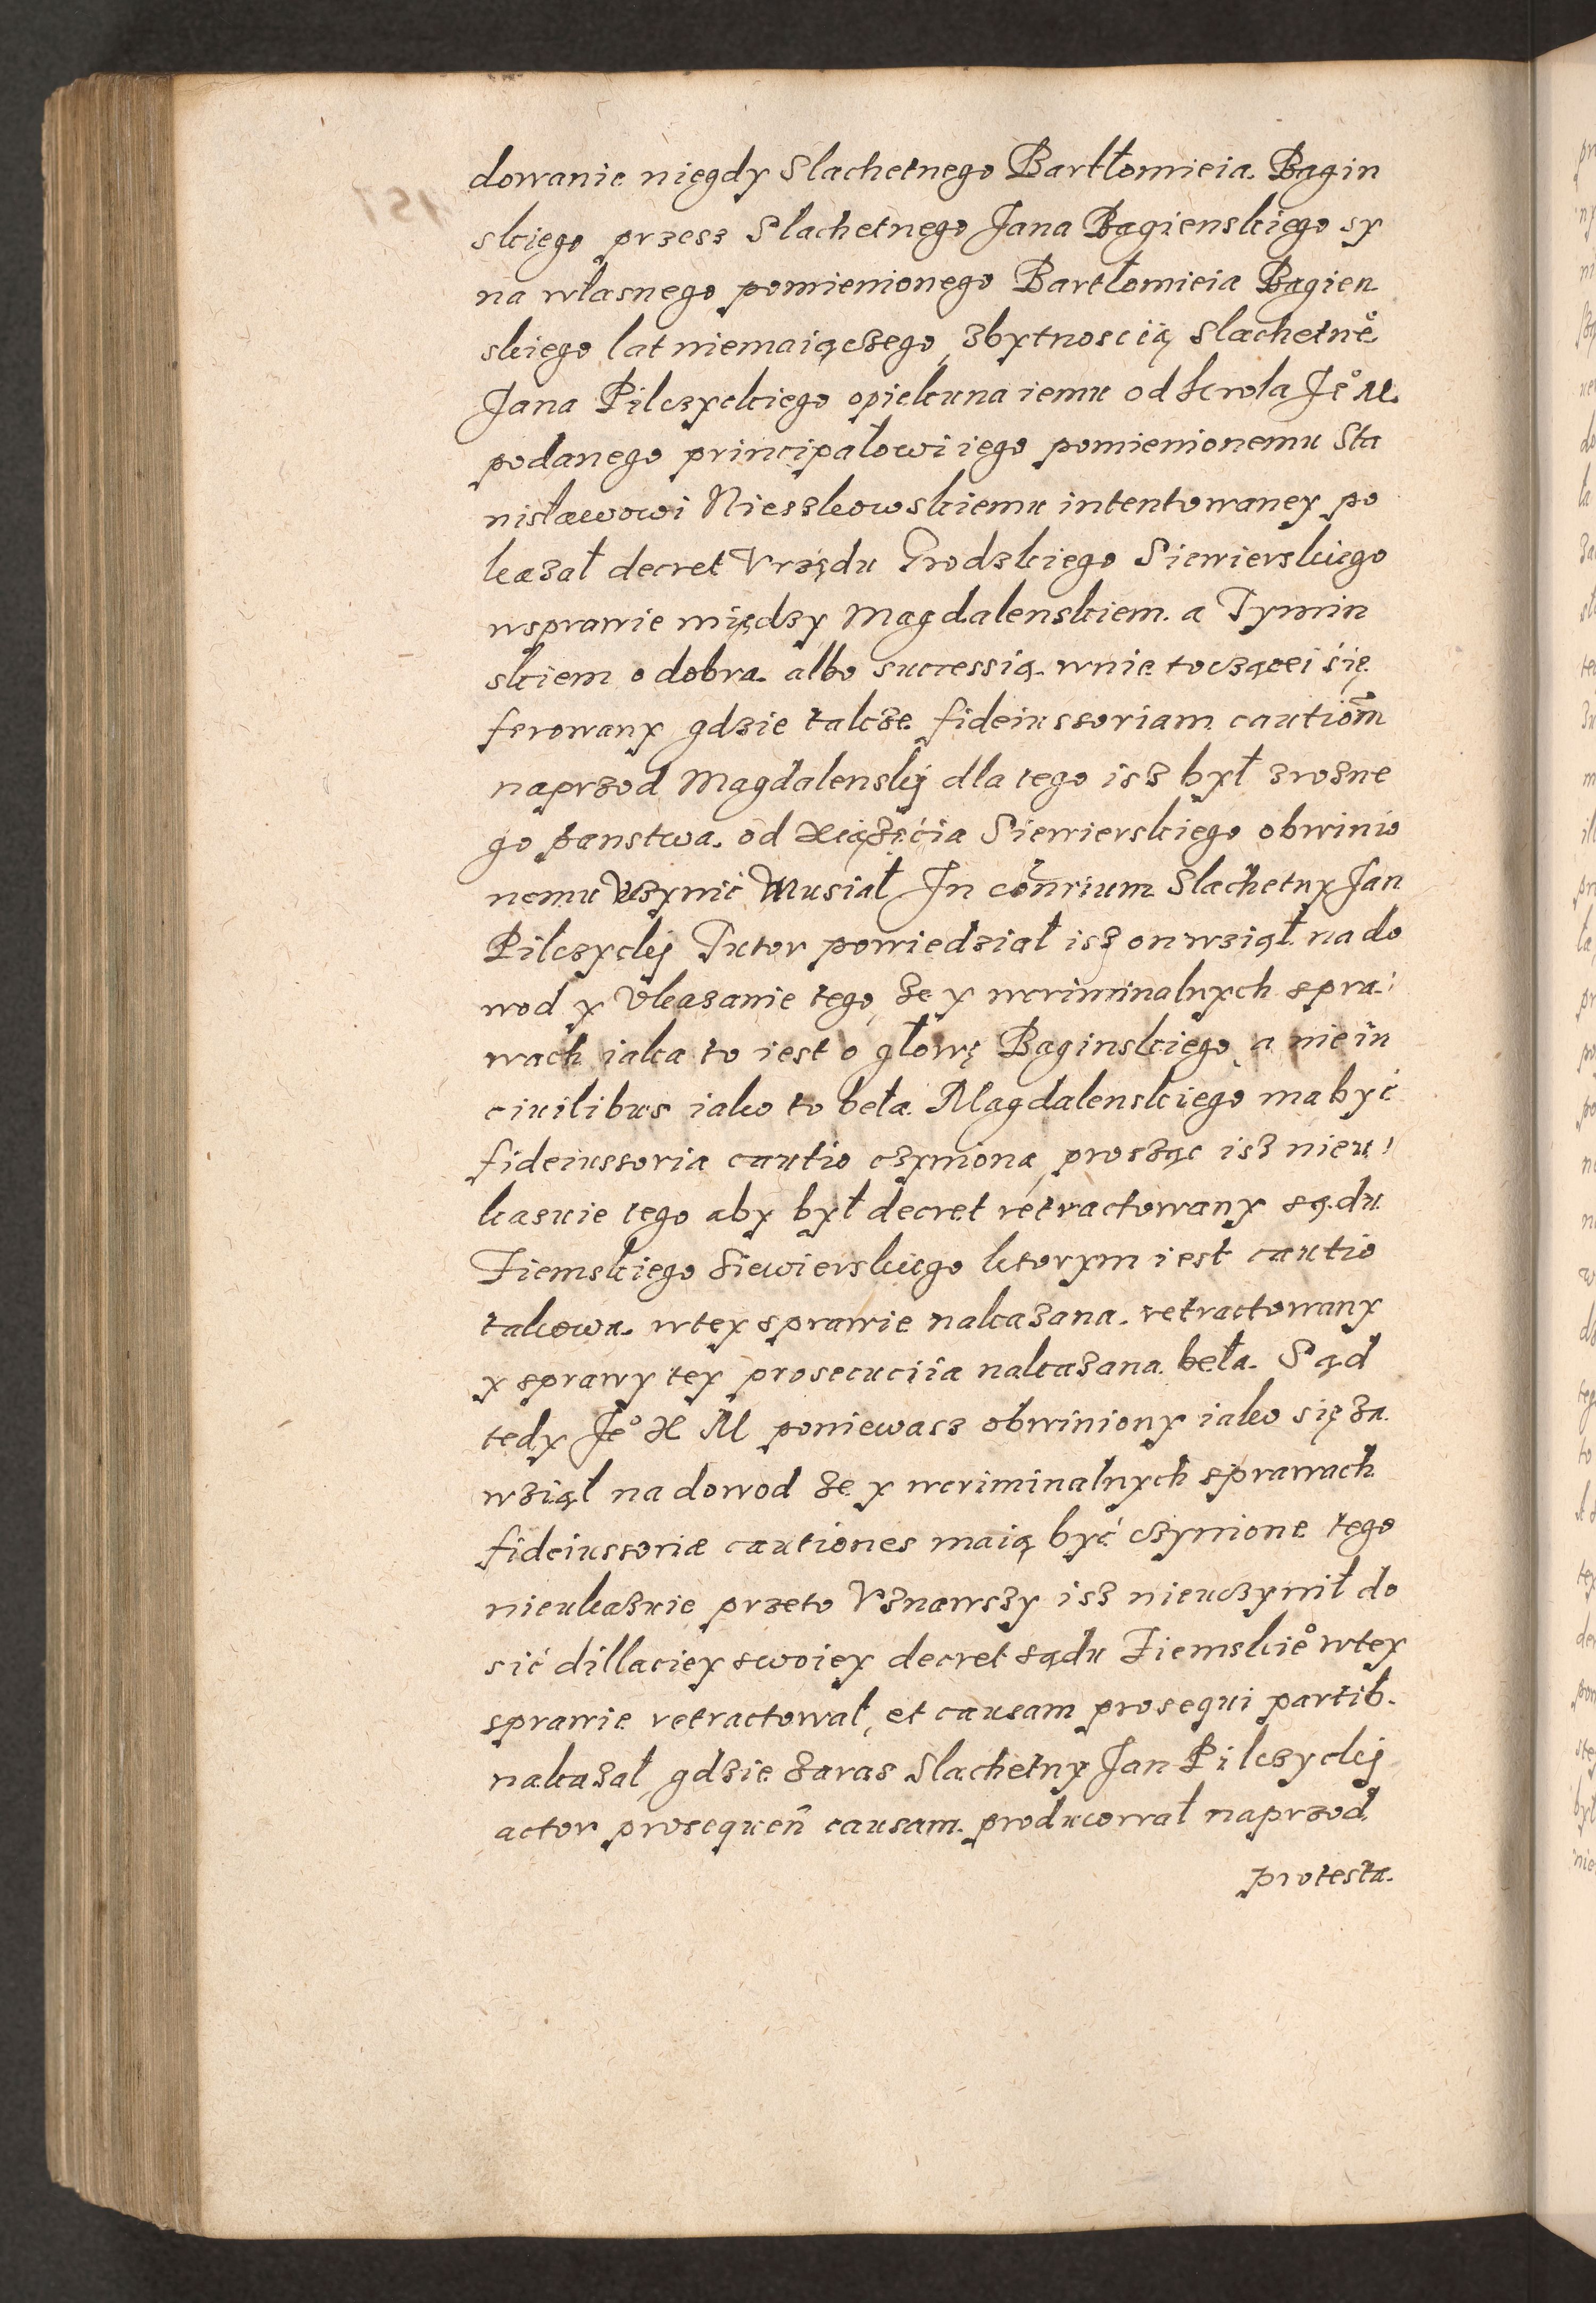 dowanie niegdy Slachetnego Bartłomieia Bagin
skiego przesz Slachetnego Jana Bagienskiego sy
na własnego pomienionego Bartłomieia Bagien
skiego lat niemaiączego, zbytnoscią Slachetne͛
Jana Pilczyckiego opiekuna iemu od krola Je͛ M.
podanego principałowi iego pomienionemu Sta
nisławowi Nieszkowskiemu intentowaney po
kazał decret Vrzędu Grodzkiego Siewierskiego
wsprawie między Magdalenskiem a Tymin
skiem o dobra albo successią wnie toczącei się
ferowany gdzie takze fideiussoriam cautiom̃
naprzod Magdalenskij dla tego isz był zrozne
go panstwa od Xiązęcia Siewierskiego obwinio
nemu Vczynić Musiał In cõnrium Slachetny Jan
Pilczyckij Tutor powiedział isz on wziął na do
wod y Vkazanie tego, ze y wcriminalnych spra:
wach iaka to iest o głowę Baginskiego, a nie in
ciuilibus iako to beła Magdalenskiego ma być
fideiussoria cautio czyniona, prosząc isz nieu:
kasuie tego aby był decret retractowany sądu
Ziemskiego Siewierskiego ktorym iest cautio
takowa wtey sprawie nakazana retractowany
y sprawy tey prosecuciia nakazana beła. Sąd
tedy Je͛ X M poniewasz obwiniony iako się za
wziął na dowod ze y wcriminalnych sprawach
fideiussoriæ cautiones maią być czynione tego
nieukazuie przeto Vznawszy isz nieuczynił do
sić dillaciey swoiey decret sądu Ziemskie͛ wtey
sprawie retractował, et causam prosequi partib.
nakazał, gdzie zaras Slachetny Jan Pilczyckij
actor prosequeñ causam producował naprzod
protesta.